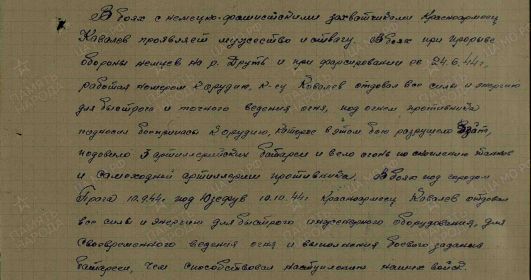 В боях с немецко-фашистскими захватчиками Красноармеец
Ковалев проявляет мужество и отвагу. В боях при прорыве
обороны немцев на р. Друть и при форсировании ее 24.6.44г.
работая номером к орудию, к-ец Ковалев отдовал все силы и энергию
для быстрого и точного ведения огня, под огнем противника
подносил боеприпасы к орудию, которое в этом бою разрушило
подавило 3 артиллерийских батареи и вело огонь по скоплению танков
и самоходной артиллерии противника. В боях под городом
Прага 10.9.44г. под Юзефув 10.10.44г. Красноармеец Ковалев отдовал
все силы и энергию для быстрого инженерного оборудования, для
своевременного ведения огня и выполнения боевого задания
батареей, чем способствовал наступлению наших войск.